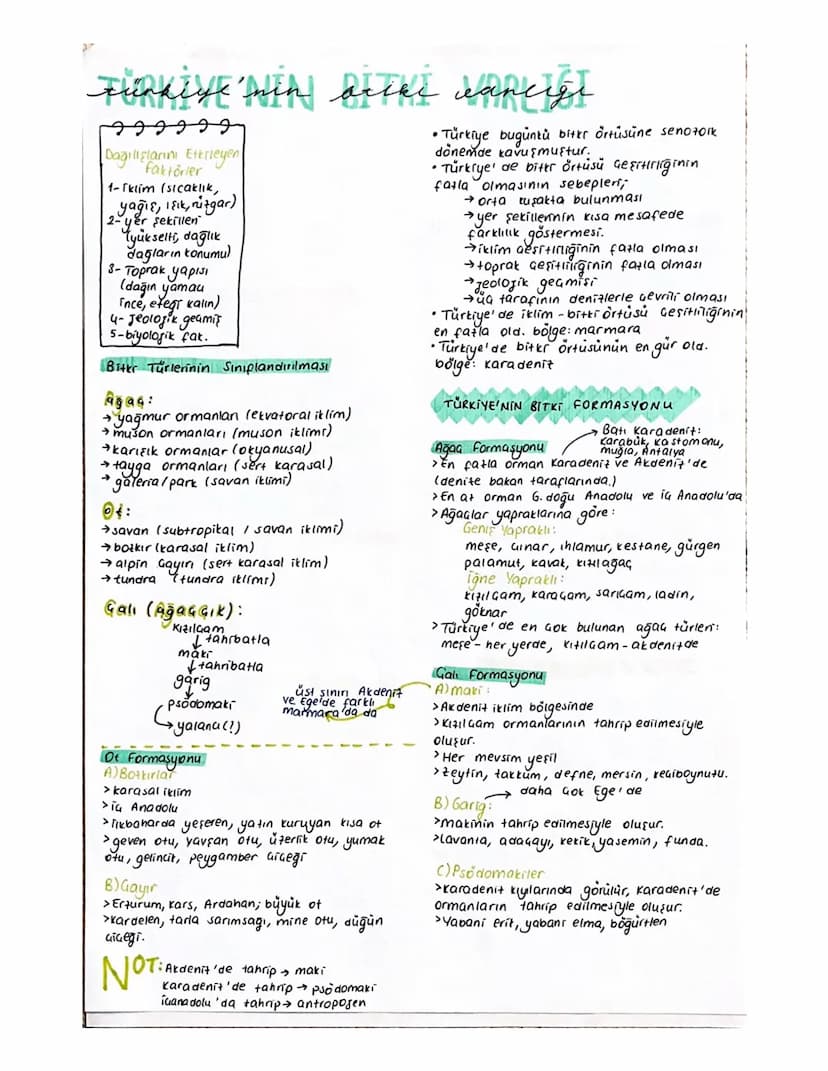 TÜRKİYE'NİN BİTKİ VARLIĞI
Dağılışlarını Etkileyen
Faktörler
1- iklim (sıcaklık,
yağış, ışık, rüzgar)
2- yer şekilleri
(yükselti, dağlık
dağların konumu)
3- Toprak yapısı
(dağın yamacı
ince, eteği kalın)
4- Jeolojik geçmiş
5- biyolojik fak.
Bitki Türlerinin Sınıflandırılması
Ağaç:
→ yağmur ormanları (ekvatoral iklim)
→ muson ormanları (muson iklimi)
→ karışık ormanlar (okyanusal)
→ tayga ormanları (sert karasal)
→ galeria/park (savan iklimi)
Ot:
→ savan (subtropikal / savan iklimi)
→ bozkır (karasal iklim)
→ alpin çayırı (sert karasal iklim)
→ tundra (tundra iklimi)
Çalı (Ağaççık):
kızılçam
↓ tahribatla
maki
↓ tahribatla
garig
↓
psödomaki
→ yalancı(!)
Ot Formasyonu
A) Bozkırlar
> karasal iklim
> iç Anadolu
> ilkbaharda yeşeren, yazın kuruyan kısa ot
> geven otu, yavşan otu, üzerlik otu, yumak
otu, gelincik, peygamber çiçeği
B) Çayır
> Erzurum, kars, Ardahan; büyük ot
> kardelen, tarla sarımsağı, mine otu, düğün
çiçeği.
NOT: Akdeniz'de tahrip → maki
karadeniz'de tahrip → psödomaki
içanadolu'da tahrip → antropojen
• Türkiye bugünkü bitki örtüsüne senozoik
dönemde kavuşmuştur.
• Türkiye'de bitki örtüsü çeşitliliğinin
fazla olmasının sebepleri;
→ orta kuşakta bulunması
→ yer şekillerinin kısa mesafede
farklılık göstermesi.
→ iklim çeşitliliğinin fazla olması
→ toprak çeşitliliğinin fazla olması
→ jeolojik geçmişi
→ üç tarafının denizlerle çevrili olması
• Türkiye'de iklim - bitki örtüsü çeşitliliğinin
en fazla old. bölge: marmara
• Türkiye'de bitki örtüsünün en gür old.
bölge: karadeniz
TÜRKİYE'NİN BİTKİ FORMASYONU
Batı Karadeniz:
karabük, kastomonu,
muğla, Antalya
Ağaç Formasyonu
> En fazla orman karadeniz ve Akdeniz'de
(denize bakan taraflarında.)
> En az orman G. doğu Anadolu ve iç Anadolu'da
> Ağaçlar yapraklarına göre:
Geniş Yapraklı:
meşe, çınar, ıhlamur, kestane, gürgen
palamut, kavak, kızılağaç
İğne Yapraklı:
kızılçam, karaçam, sarıçam, ladin,
göknar
> Türkiye'de en çok bulunan ağaç türleri:
meşe - her yerde, kızılçam - akdenizde
Çalı Formasyonu
A) maki:
üst sınırı Akdeniz
ve Ege'de farklı
marmara'da da
> Akdeniz iklim bölgesinde
> kızılçam ormanlarının tahrip edilmesiyle
oluşur.
> Her mevsim yeşil
> zeytin, zakkum, defne, mersin, keçiboynuzu.
→ daha çok Ege'de
B) Garig:
> makinin tahrip edilmesiyle oluşur.
> Lavanta, adaçayı, kekik, yasemin, funda.
C) Psödomakiler
> karadeniz kıyılarında görülür, karadeniz'de
ormanların tahrip edilmesiyle oluşur.
> Yabani erik, yabani elma, böğürtlen